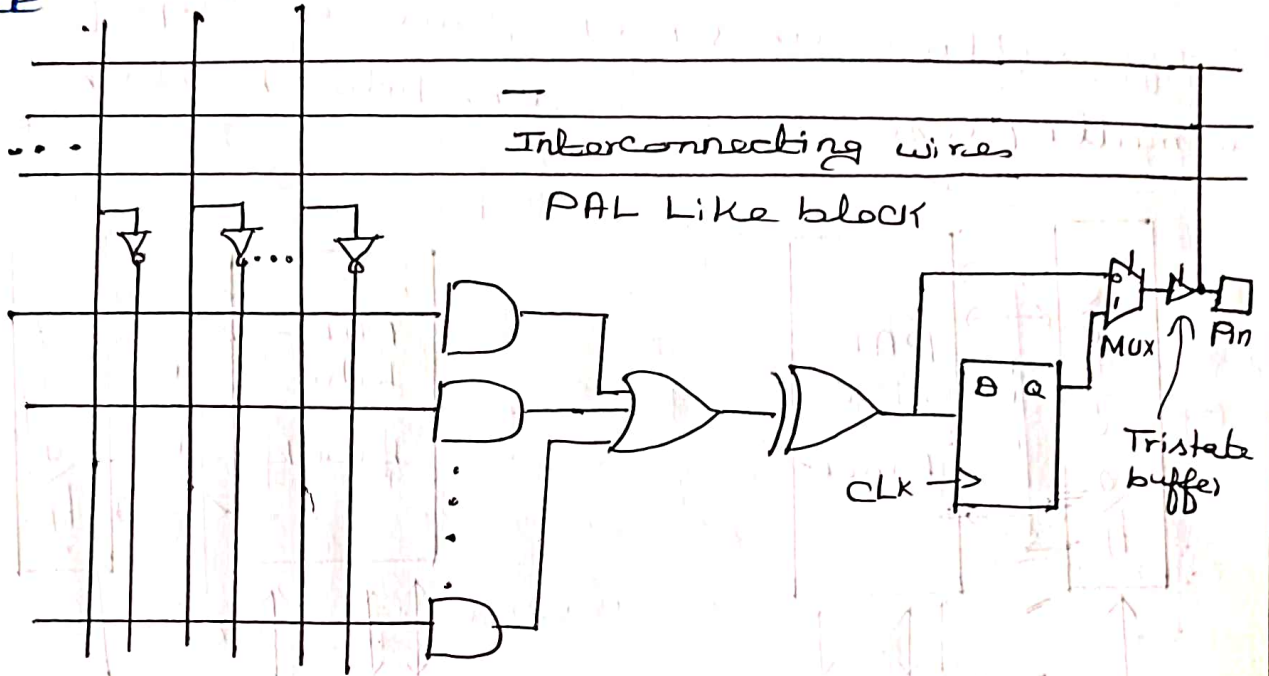 Interconnecting wires
PAL Like block
0
1
MUX
Pin
D Q
CLK
Tristate
buffer